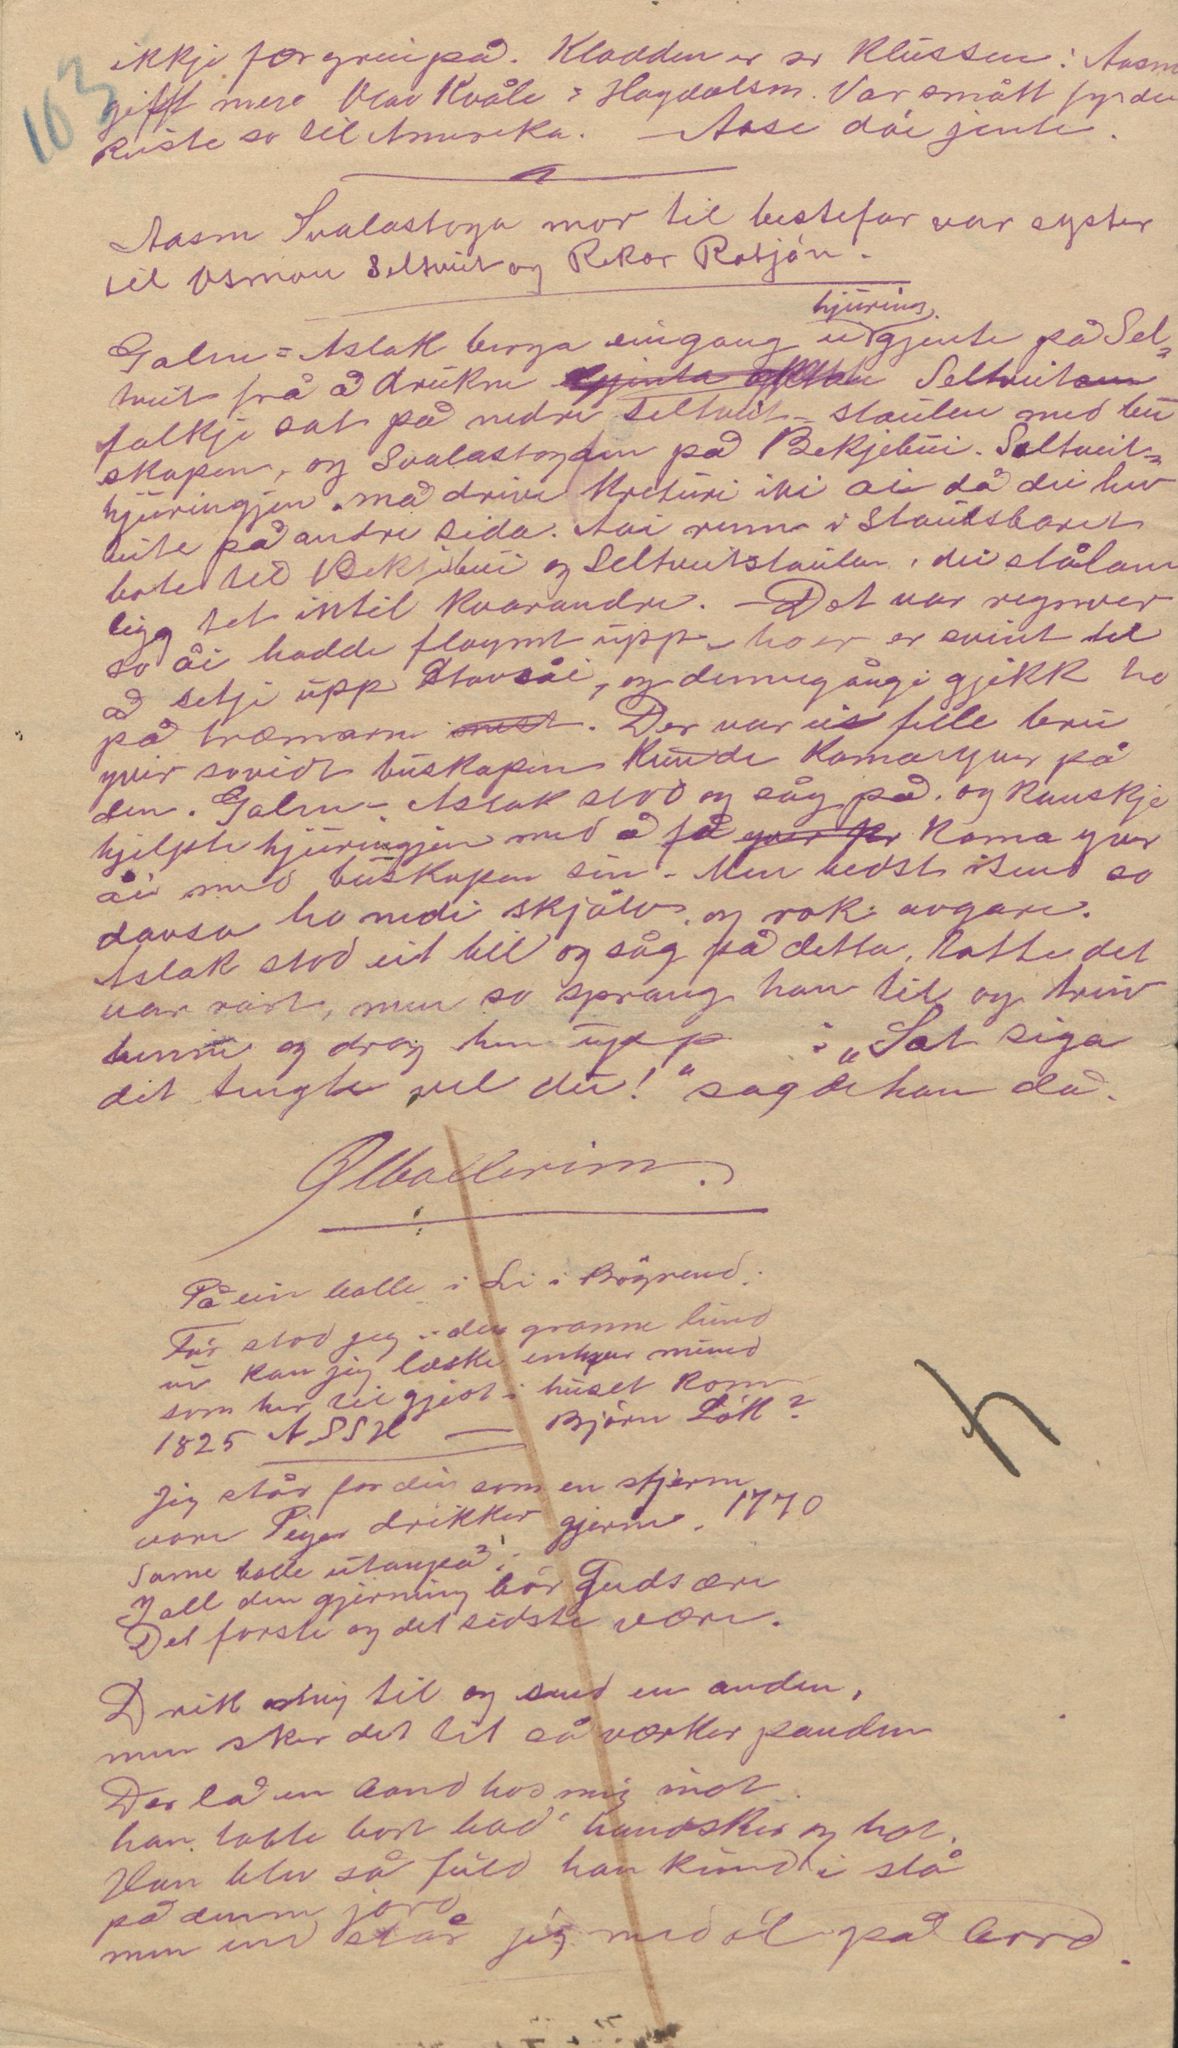 103
ikkje for greinpå. Kladden er sr Klussen: Aasm
gifft mere Olav Kvåle = Hagdalsm. Var smått fyr dei
Reiste so til Amerika. — Aase dói jente.
Aasne Svalastoga mor til bestefar var syster
til Osmon Seltveit og Rekor Rotjón.
hjuring
Galne = Aslak berga eingong ei gjente på Sel=
tveit frå å drukne Seltveit
folkje sat på nedre Seltveit-staulen med bu
skapen, og Svalastogdn på Bekjebui. Seltveit=
hjuringjen må drive kreturi ivi ai då dei hev
beite på andre sida. Aai renn i Staulsbaret
bate til Bekjebui og Seltveitstaulen, dei stålane
ligg tet intil kvarandre. — Det var regnver
so åi hadde flaymt upp, ho er er svint til
å setje upp Stavsåi, og dennegångi gjekk ho
på træmarne. Der var ei felle bru
yvir sovidt buskapen kunde koma yver på
den. Galne-Aslak stod og såg på. og kanskje
hjelpte hjuringjen med å få koma yver
åi med buskapen sin. Men bedst isend so
davsa ho nedi skjölv. og rok avgare.
Aslak stod eit bil og såg på detta, totte det
var rart, men so sprang han til og treiv
henni og drog hen upp : „Sat siga
dit tingle vel du!" sagde han då.
Ølbollerim.
På ein bolle i Li i Bögrend.
Før stod jeg i den grønne lund
nu kan jeg læske enhver mund
som her til gjest i huset kom
1825 A S S H — Björn Lók?
Jeg står for din som en stjerne
vore Piger drikker gjerne. 1770
Same bolle utanpå:
I all din gjerning bör Guds ære
Det forste og det sidste være.
Drik mig til og send en anden,
men sker det tit så værker panden
Der lå en bond hos mig inat
han tabte bort båd' handsker og hat.
Han blev så fuld han kund ei stå
på denne jord
men end står jeg med öl på bord.
h